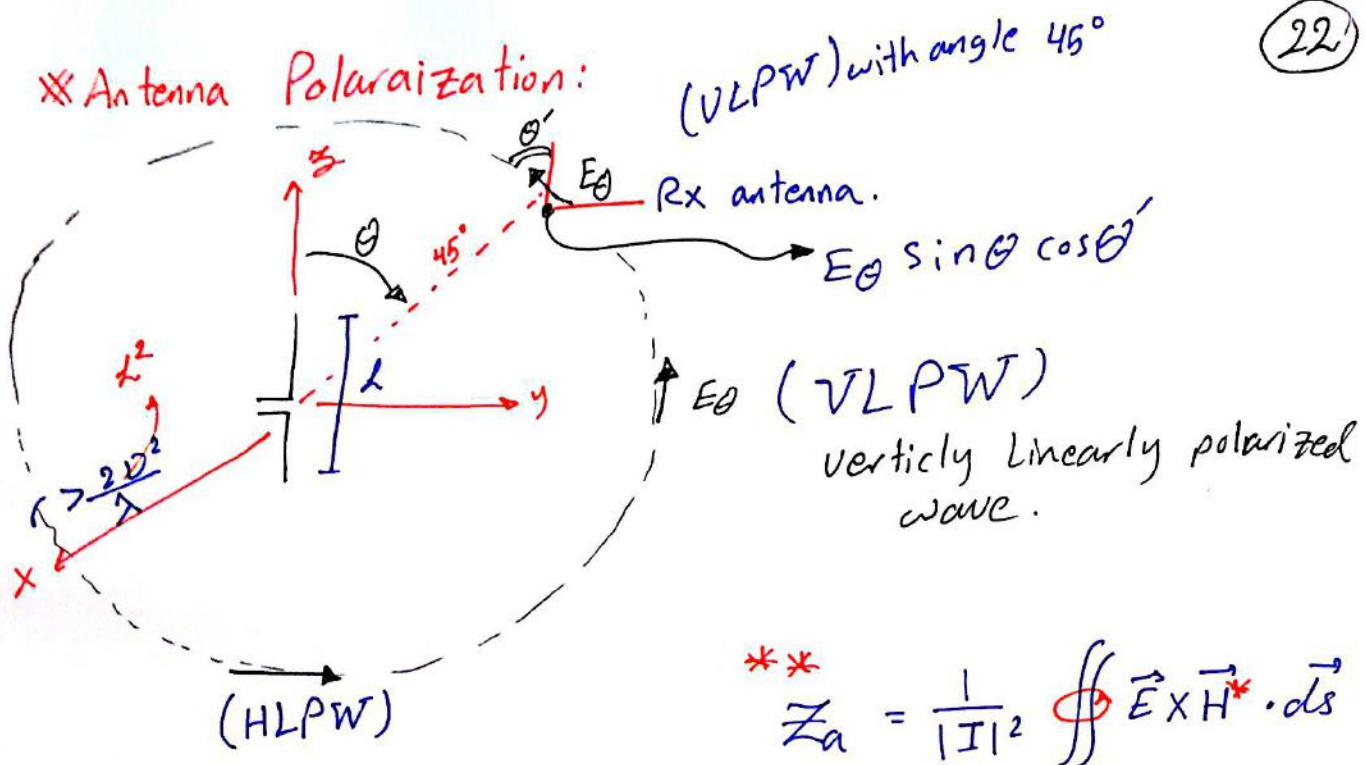 22
※ Antenna Polaraization:
(VLPW) with angle 45°
θ'
z
Eθ
Rx antenna.
θ
45°
Eθ sinθ cosθ'
L²
L
y
Eθ (VLPW)
verticly Linearly polarized
wave.
r > 2D²/λ
x
(HLPW)
**
Za = 1/|I|² ∯ E⃗ x H⃗* · ds⃗